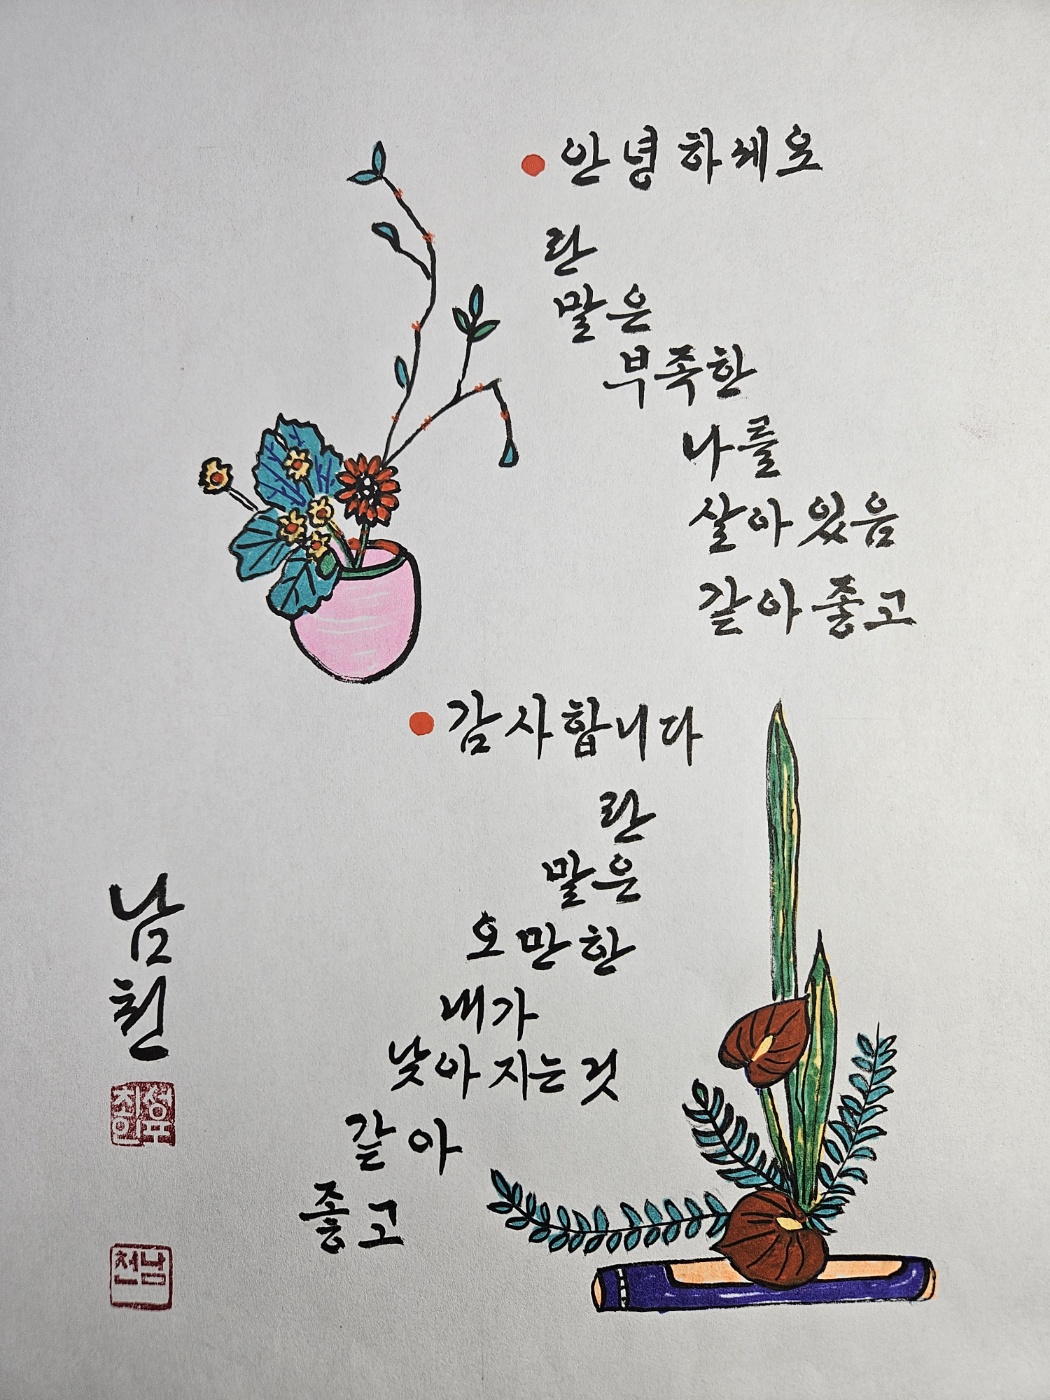 안녕하세요
란
말은
부족한
나를
살아있음
같아 좋고
감사합니다
란
말은
오만한
내가
낮아 지는 것
같아
좋고
남
천
남천